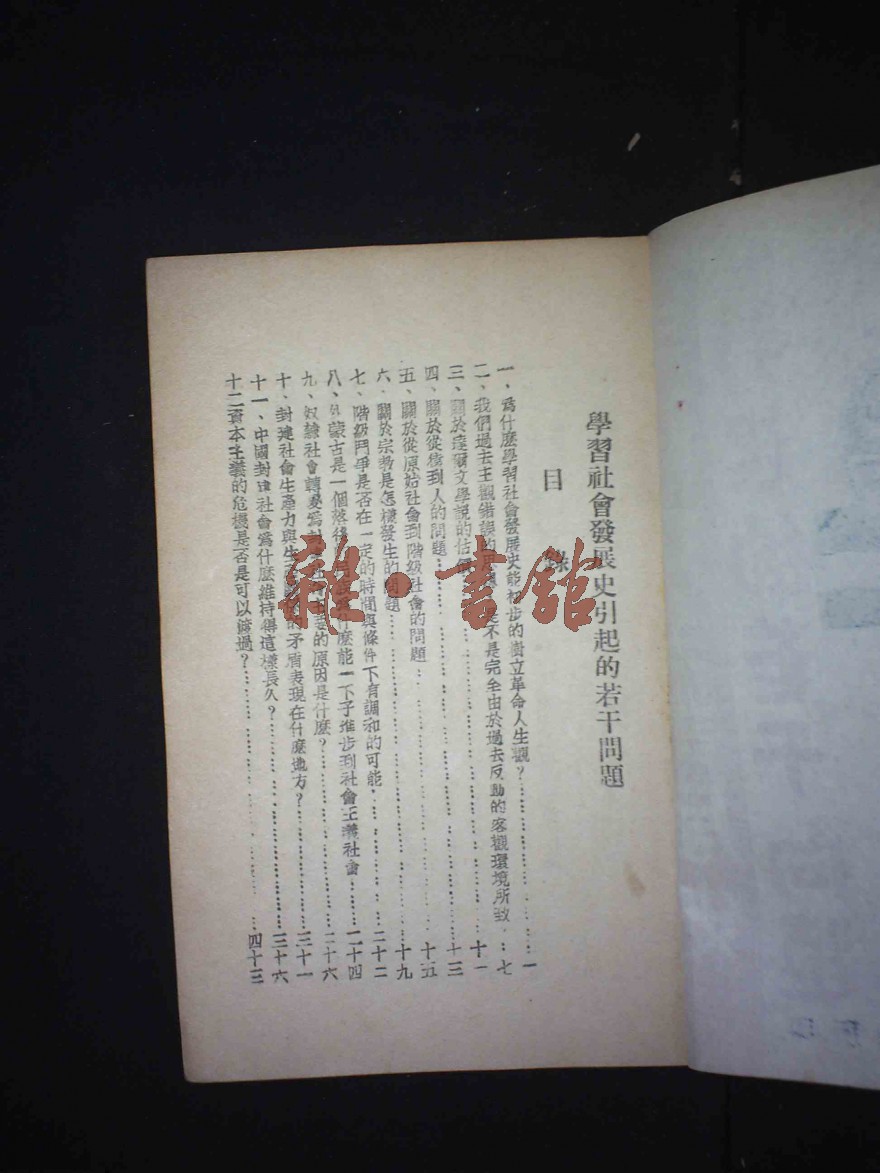 學習社會發展史引起的若干問題
目錄
一、爲什麽學習社會發展史能初步的樹立革命人生觀?……一
二、我們過去主觀錯誤的 是不是完全由於過去反動的客觀環境所致…七
三、關於達爾文學說的估 ……十一
四、關於從猿到人的問題……十三
五、關於從原始社會到階級社會的問題……十五
六、關於宗教是怎樣發生的問題……十九
七、階級鬥爭是否在一定的時間與條件下有調和的可能……二十二
八、外蒙古是一個落後 什麽能一下子進步到社會主義社會……二十四
九、奴隸社會轉變爲封 要的原因是什麽?……二十六
十、封建社會生產力與生產 的矛盾表現在什麽地方?……三十一
十一、中國封建社會爲什麽維持得這樣長久?……三十六
十二資本主義的危機是否是可以僥過?……四十三
雜·書館